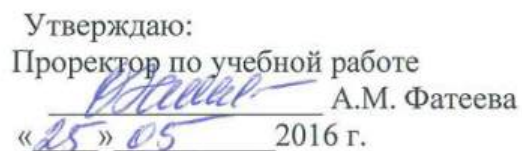 Утверждаю:
Проректор по учебной работе
А.М. Фатеева
«25» 05 2016 г.